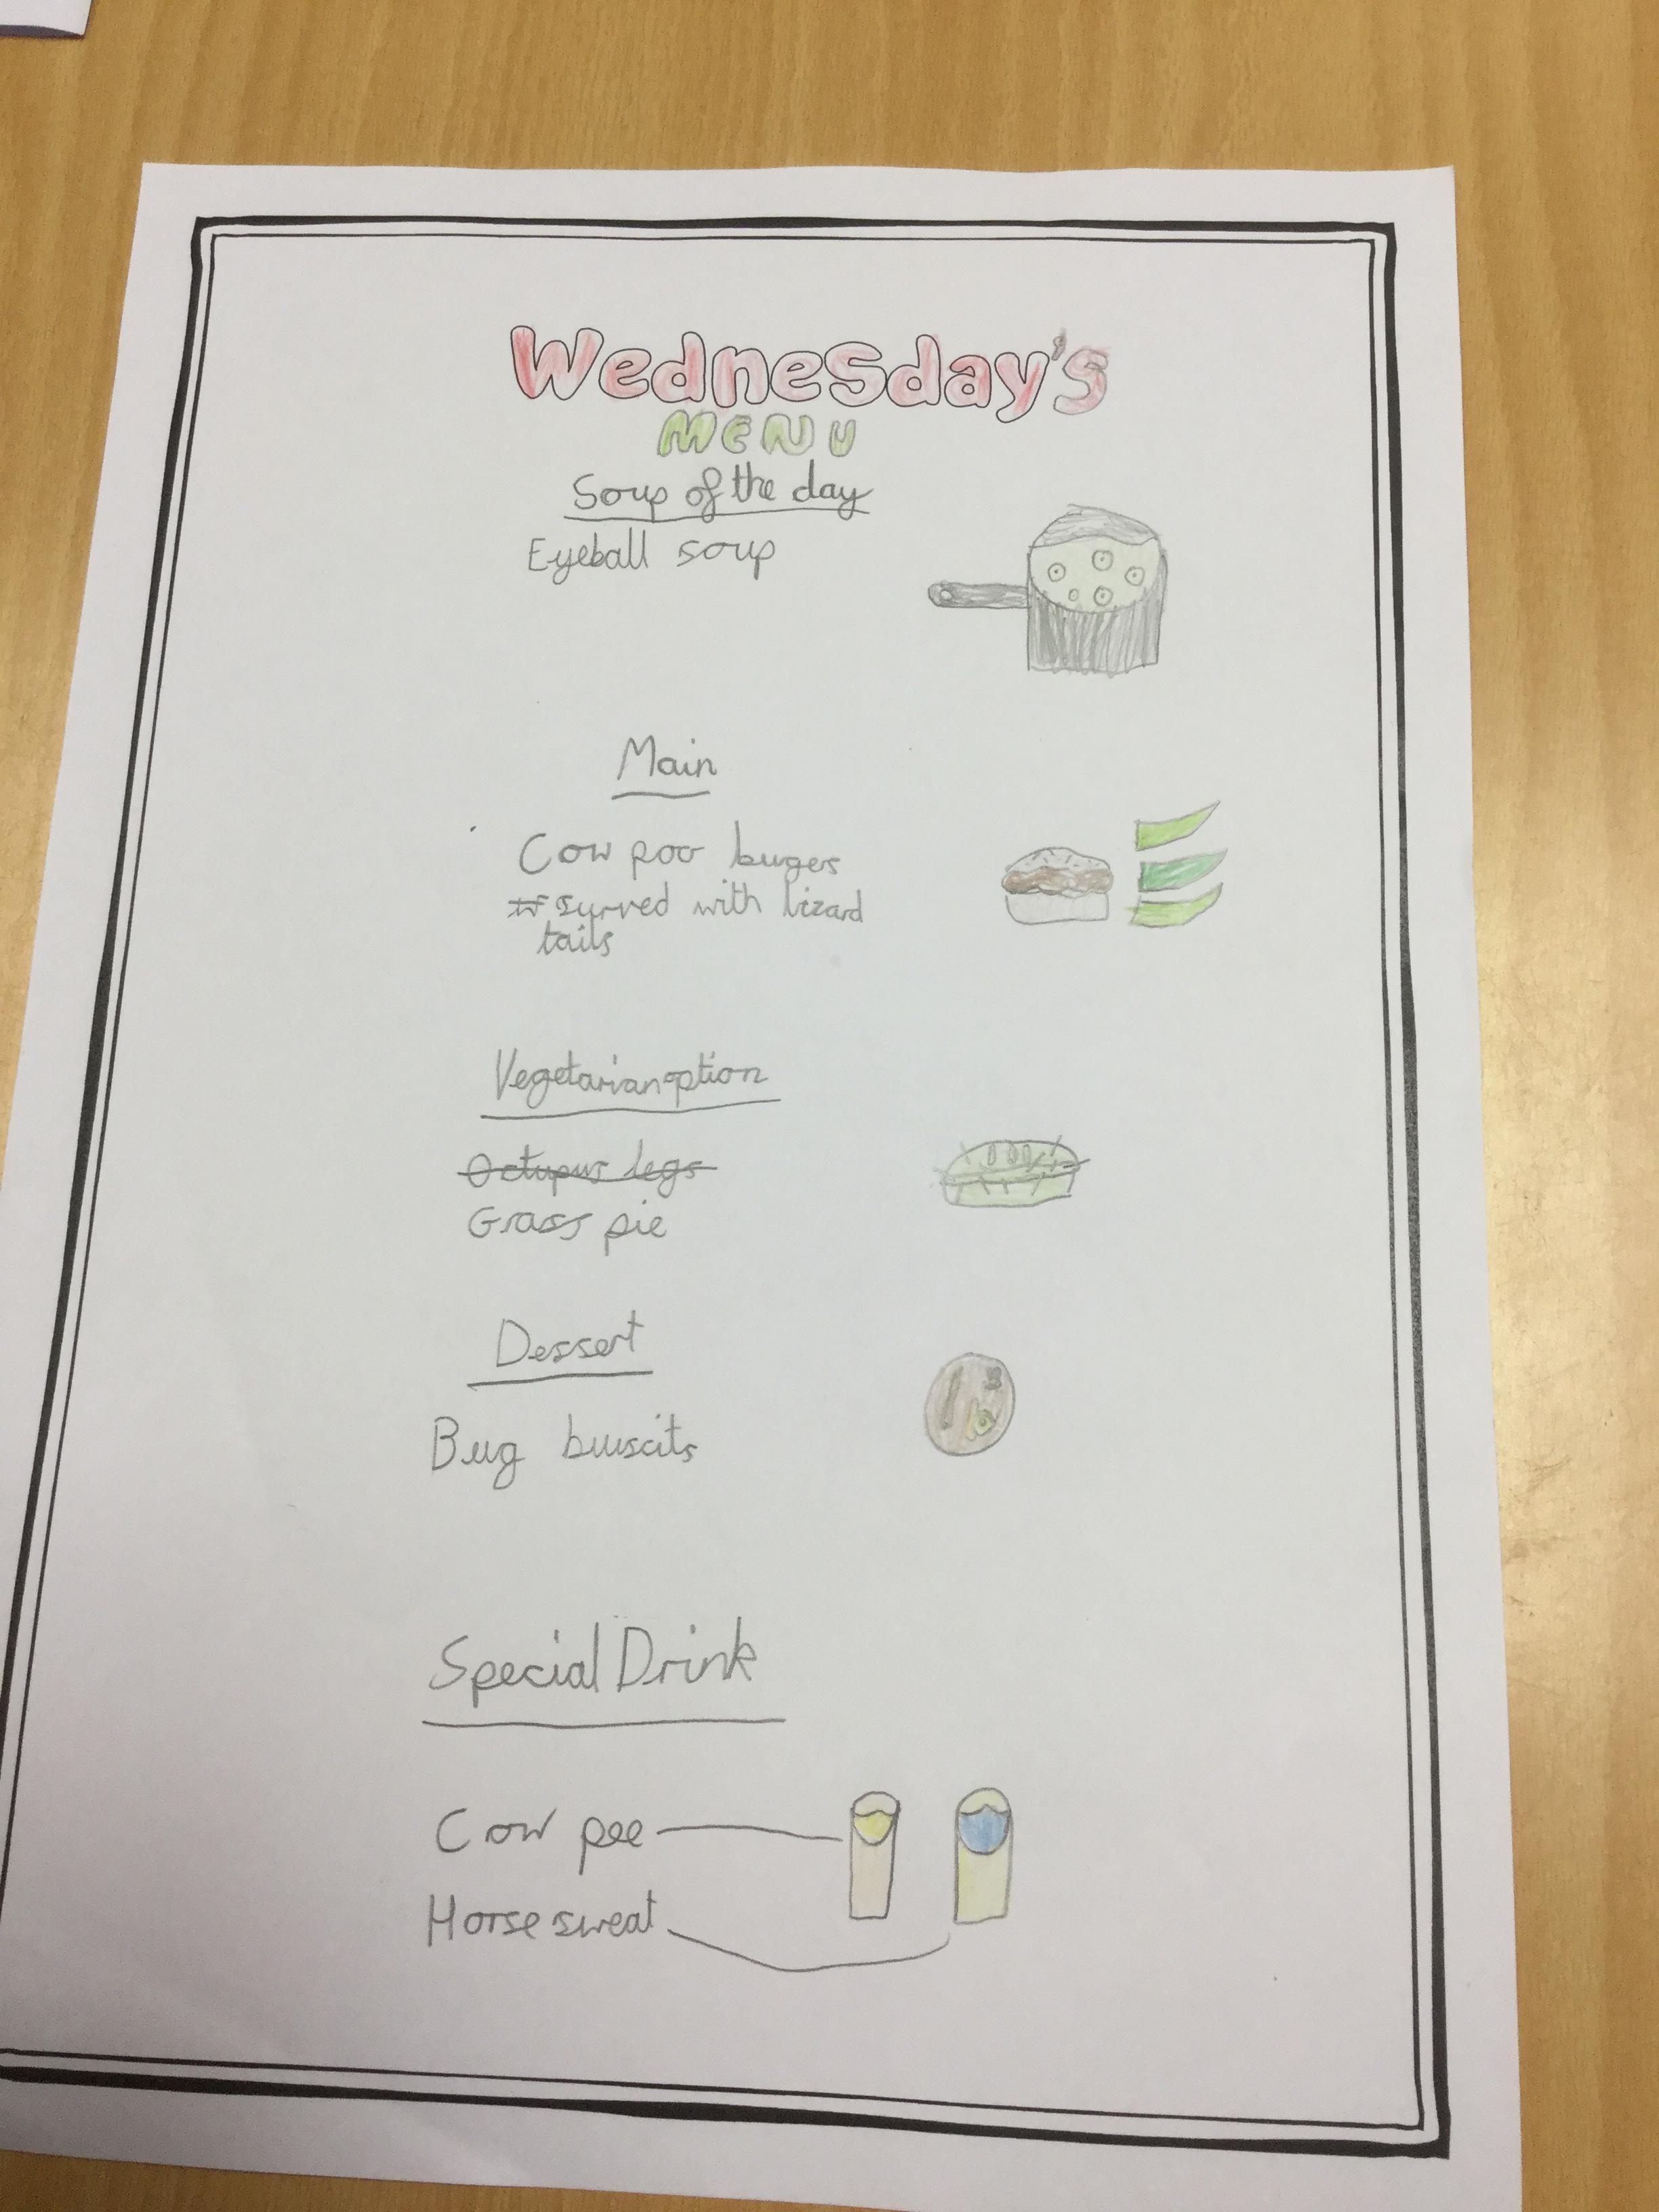 Wednesday's
MENU
Soup of the day
Eyeball soup
Main
Cow poo burgers
surved with lizard
tails
Vegetarian option
Octupus legs
Grass pie
Dessert
Bug buiscits
Special Drink
Cow pee
Horse sweat